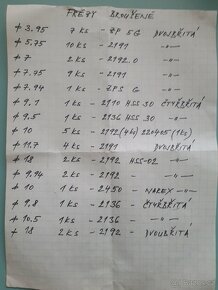 FRÉZY BROUŠENÉ
+ 3.95 7 ks - ZP 5G DVOJBŘITÁ
+ 5.75 10 ks - 2191 -"-
+ 7 2 ks - 2192.0 -"-
+ 7.75 9 ks - 2191 -"-
+ 7.94 1 ks - ZPS G -"-
+ 9,1 1 ks - 2110 HSS 30 ČTYŘBŘITÁ
+ 9.5 1 ks - 2136 HSS 30 -"-
+ 10 5 ks - 2192 (4ks) 220405 (1ks)
+ 11.7 4 ks - 2191 DVOUBŘITÁ
+ 18 2 ks - 2192 HSS-02 -"-
+ 9.94 2 ks - 2192 -"-
+ 10 1 ks - 2450 - NAREX -"-
+ 9,8 1 ks - 2136 - ČTYŘBŘITÁ
+ 10.5 1 ks - 2136 - -"-
+ 18 2 ks - 2192 - DVOUBŘITÁ